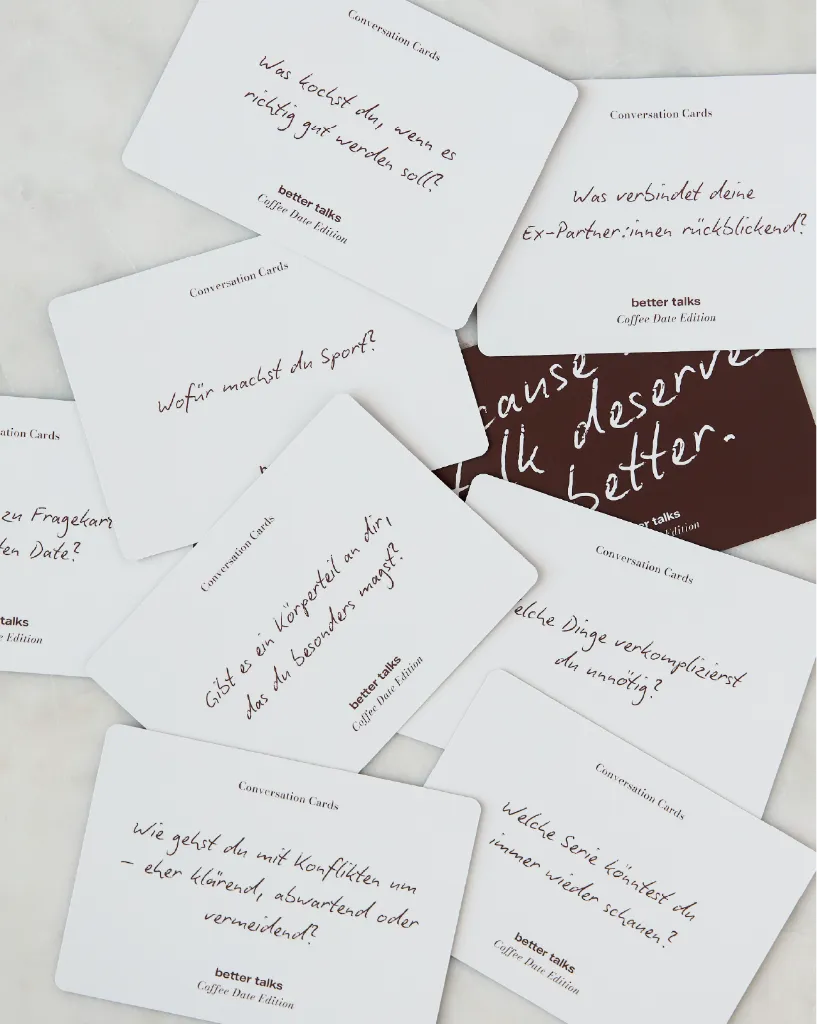 Conversation Cards
Was kochst du, wenn es
richtig gut werden soll?
better talks
Coffee Date Edition
Conversation Cards
Was verbindet deine
Ex-Partner:innen rückblickend?
better talks
Coffee Date Edition
Conversation Cards
Wofür machst du Sport?
cause
lk deserves
better.
r talks
Edition
ation Cards
zu Fragekar
en Date?
talks
e Edition
Conversation Cards
Gibt es ein Körperteil an dir,
das du besonders magst?
better talks
Coffee Date Edition
Conversation Cards
elche Dinge verkomplizierst
du unnötig?
Conversation Cards
Wie gehst du mit Konflikten um
– eher klärend, abwartend oder
vermeidend?
better talks
Coffee Date Edition
Conversation Cards
Welche Serie könntest du
immer wieder schauen?
better talks
Coffee Date Edition